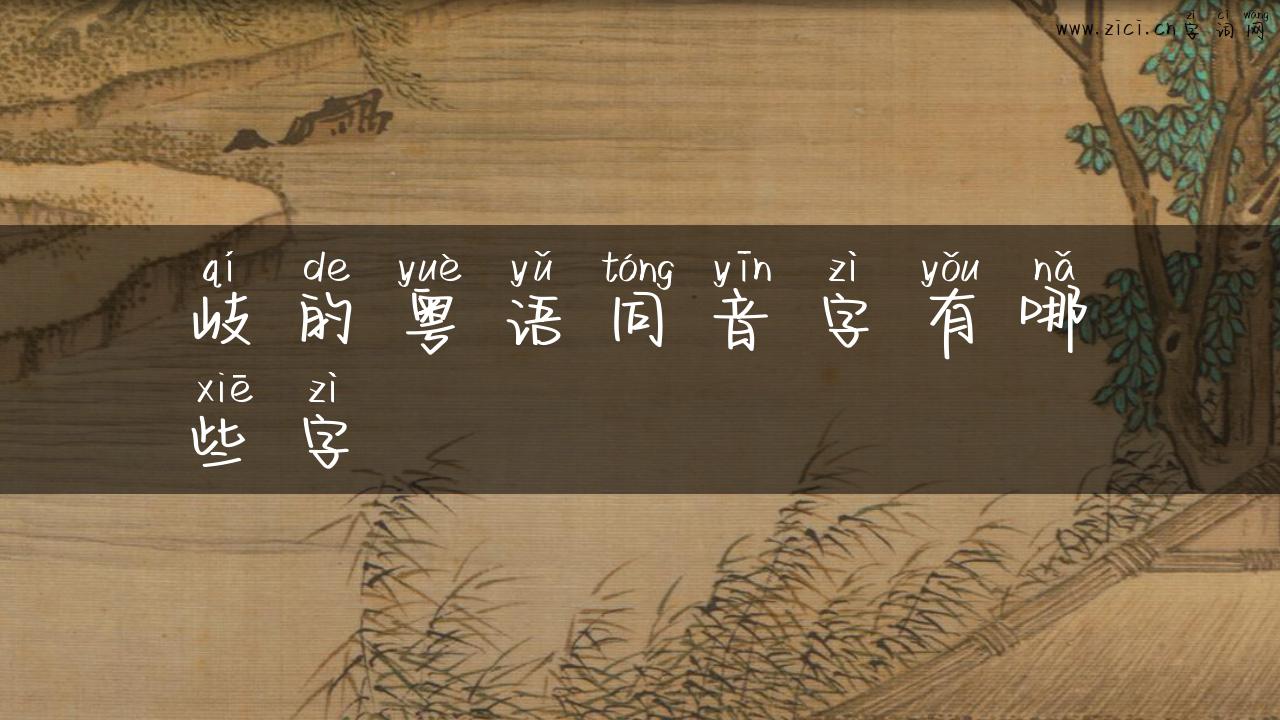 zì cí wǎng
www.zici.cn字词网
qí de yuè yǔ tóng yīn zì yǒu nǎ
歧的粤语同音字有哪
xiē zì
些字